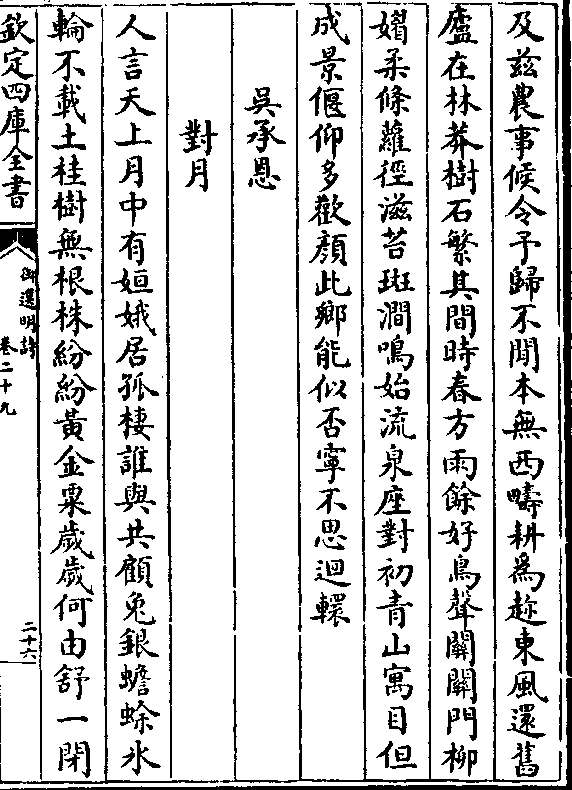 及茲農事候令予歸不聞本無西疇耕為趂東風還舊
廬在林莽樹石繁其間時春方雨餘好鳥聲關關門柳
嫺柔條蘿徑滋苔斑澗鳴始流泉座對初青山寓目但
成景偃仰多歡顏此鄉能似否寧不思迴轅
吳承恩
對月
人言天上月中有姮娥居孤棲誰與共顧兔銀蟾蜍氷
輪不載土桂樹無根株紛紛黃金粟歲歲何由舒一閉
欽定四庫全書
御選明詩
卷二十九
二十六